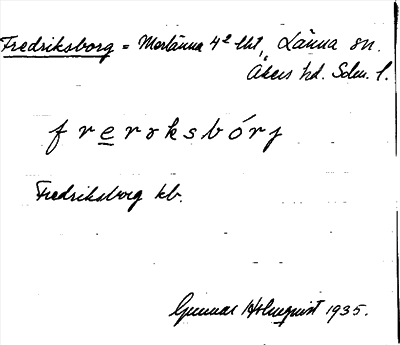 Fredriksborg = Merlänna 4² lht, Länna sn.
Åkers hd. Sdm. l.
frerɤksbórj
Fredriksborg kb.
Gunnar Holmquist 1935.